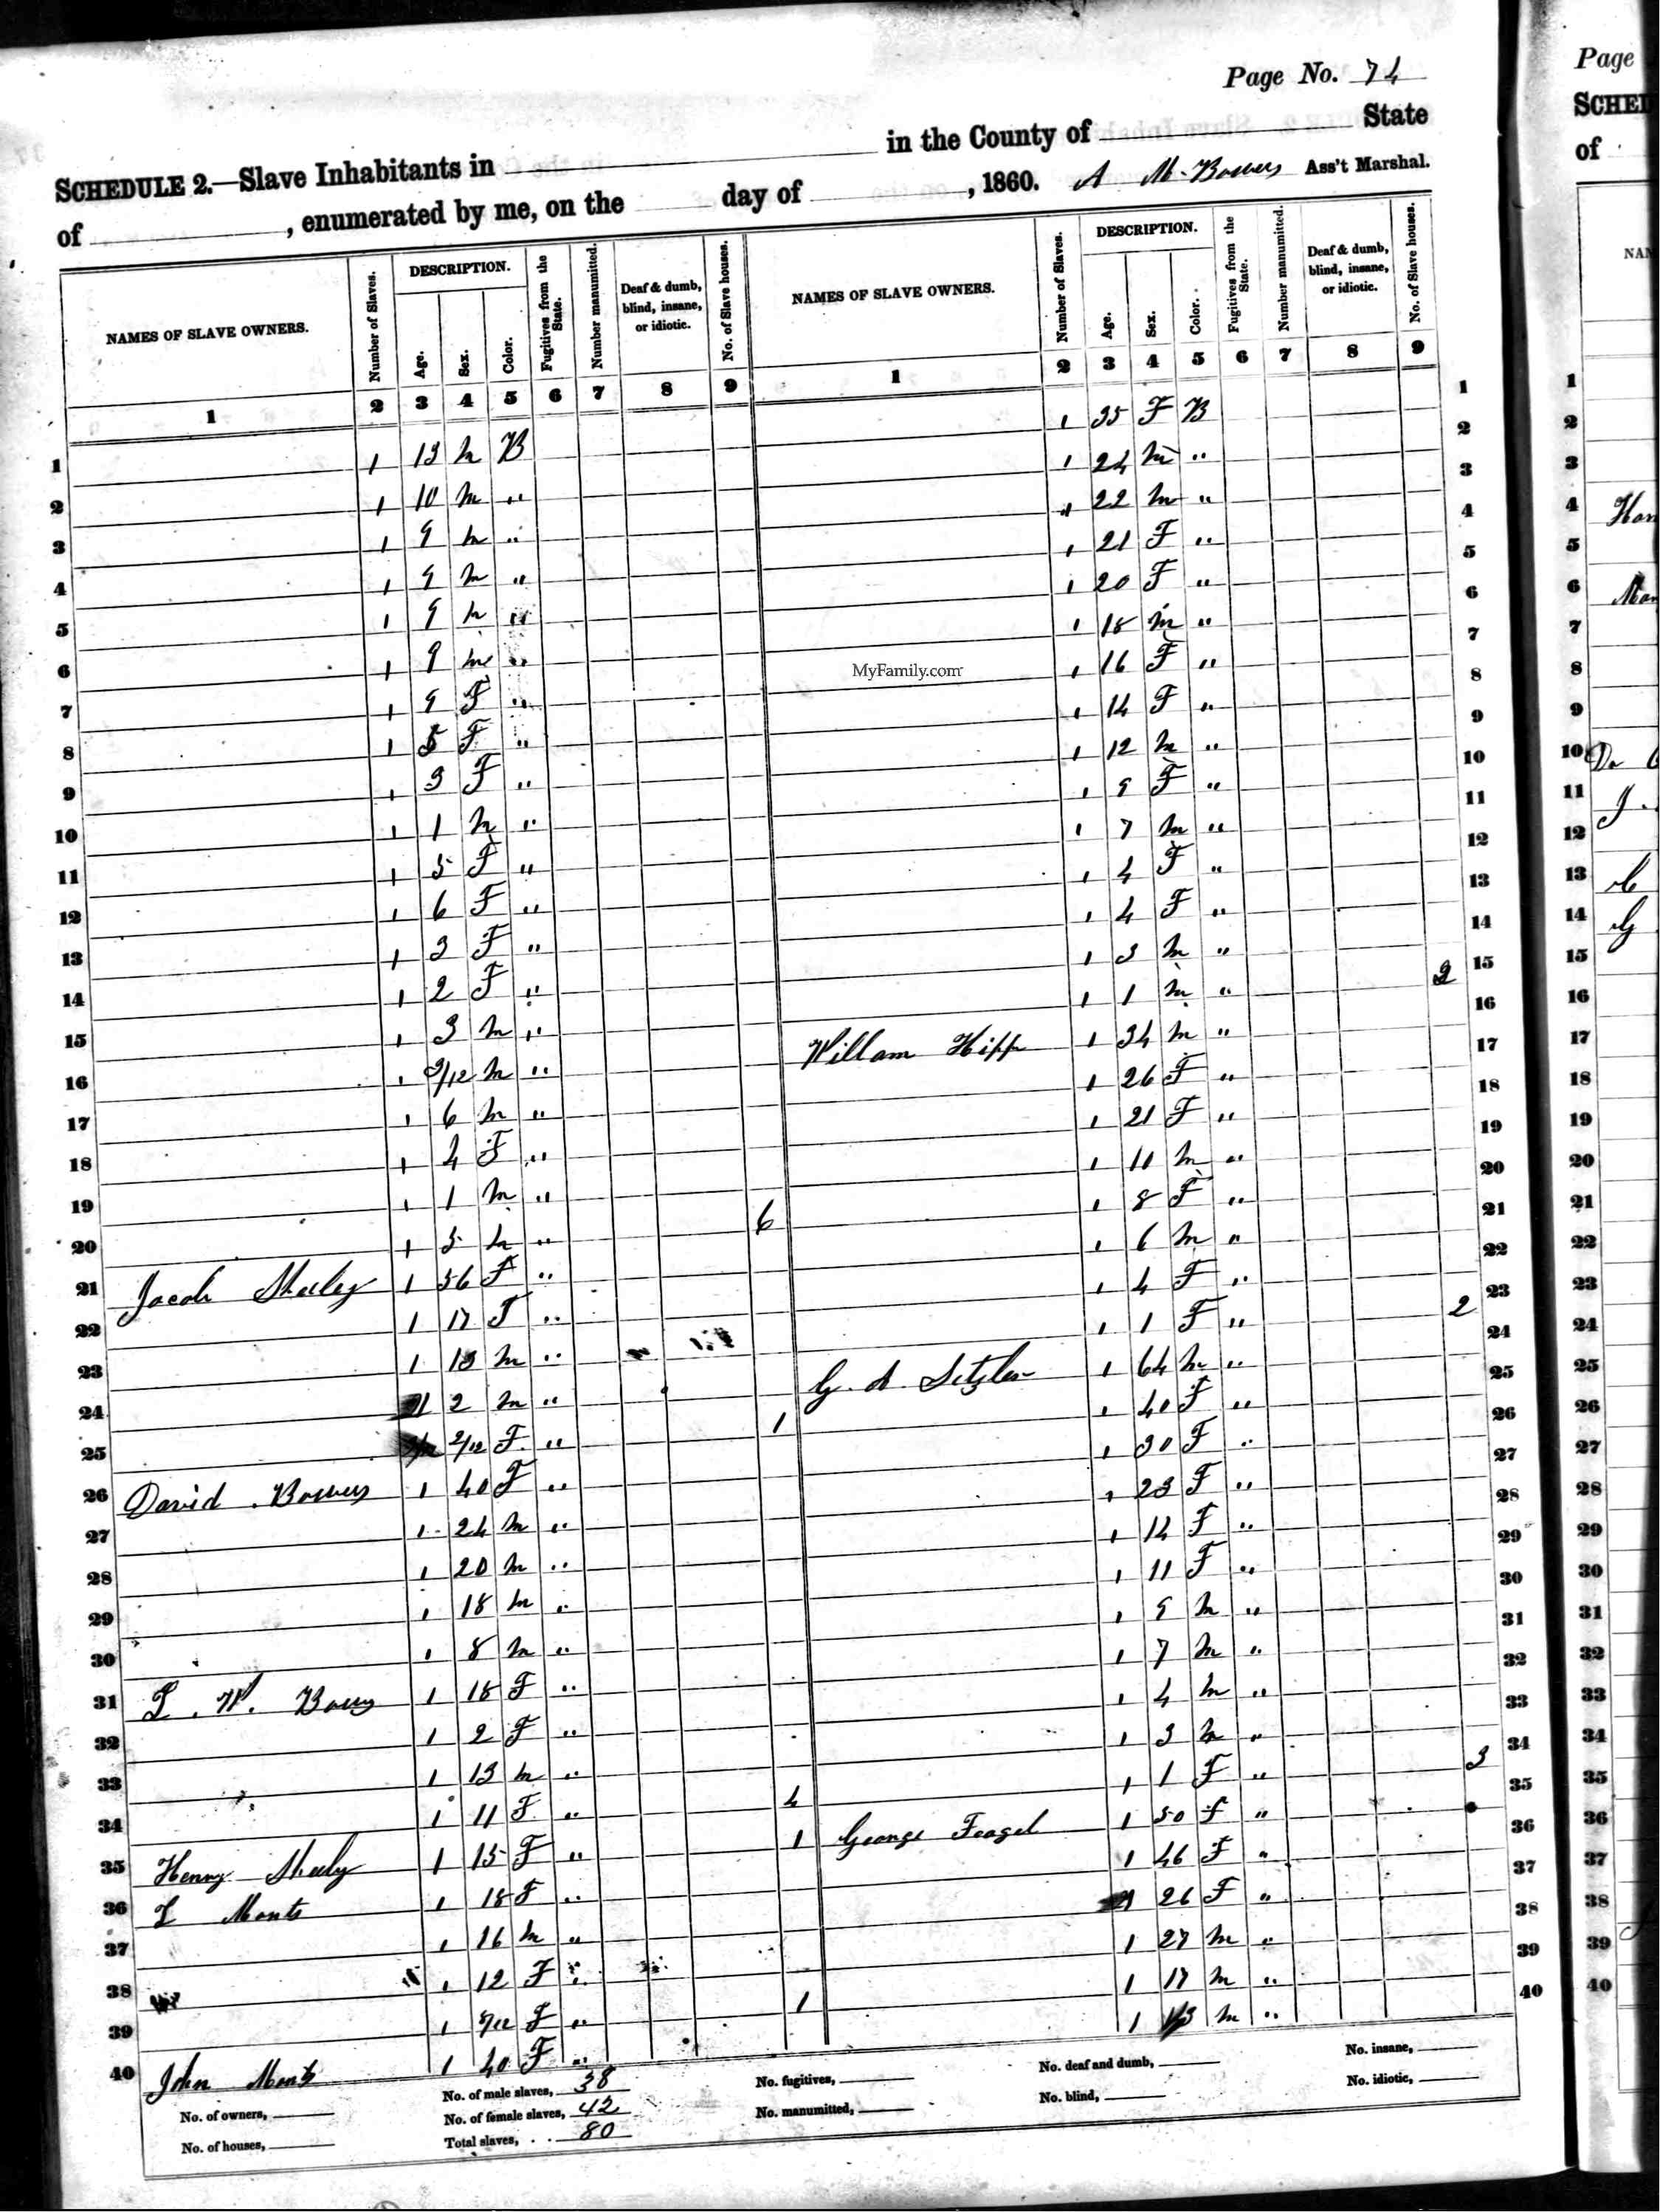 Page No. 74
SCHEDULE 2.—Slave Inhabitants in in the County of State
of , enumerated by me, on the day of , 1860. A M. Bowers Ass't Marshal.
NAMES OF SLAVE OWNERS. Number of Slaves. DESCRIPTION. Age. Sex. Color. Fugitives from the State. Number manumitted. Deaf & dumb, blind, insane, or idiotic. No. of Slave houses. NAMES OF SLAVE OWNERS. Number of Slaves. DESCRIPTION. Age. Sex. Color. Fugitives from the State. Number manumitted. Deaf & dumb, blind, insane, or idiotic. No. of Slave houses.
1 2 3 4 5 6 7 8 9 1 2 3 4 5 6 7 8 9
1 1 13 M B 1 35 F B 1
2 1 10 M " 1 24 M " 2
3 1 9 M " 1 22 M " 3
4 1 9 M " 1 21 F " 4
5 1 9 M " 1 20 F " 5
6 1 9 M " 1 18 M " 6
7 1 9 F " MyFamily.com 1 16 F " 7
8 1 5 F " 1 14 F " 8
9 1 3 F " 1 12 M " 9
10 1 1 M " 1 9 F " 10
11 1 5 F " 1 7 M " 11
12 1 6 F " 1 4 F " 12
13 1 3 F " 1 4 F " 13
14 1 2 F " 1 3 M " 14
15 1 3 M " 1 1 M " 2 15
16 1 /12 M " Willam Hipp 1 34 M " 16
17 1 6 M " 1 26 F " 17
18 1 4 F " 1 21 F " 18
19 1 1 M " 1 11 M " 19
20 1 5 M " 6 1 8 F " 20
21 Jacob Sheeley 1 56 F " 1 6 M " 21
22 1 17 F " 1 4 F " 22
23 1 13 M " 1 1 F " 2 23
24 1 2 M " G. A. Setzler 1 64 M " 24
25 2/12 F " 1 1 40 F " 25
26 David Bowers 1 40 F " 1 30 F " 26
27 1 24 M " 1 23 F " 27
28 1 20 M " 1 14 F " 28
29 1 18 M " 1 11 F " 29
30 1 8 M " 1 9 M " 30
31 L. W. Bowers 1 18 F " 1 7 M " 31
32 1 2 F " 1 4 M " 32
33 1 13 M " 1 3 M " 33
34 1 11 F " 4 1 1 F " 3 34
35 Henry Sheely 1 15 F " 1 George Feagel 1 50 F " 35
36 L Monts 1 18 F " 1 46 F " 36
37 1 16 M " 1 26 F " 37
38 1 12 F " 1 27 M " 38
39 1 /12 F " 1 1 17 M " 39
40 John Monts 1 40 F " 1 M " 40
No. of owners, No. of male slaves, 38 No. fugitives, No. deaf and dumb, No. insane,
No. of houses, No. of female slaves, 42 No. manumitted, No. blind, No. idiotic,
Total slaves, 80
Page
SCHE
of
NAM
1
2
3
4
5
6
7
8
9
10
11
12
13
14
15
16
17
18
19
20
21
22
23
24
25
26
27
28
29
30
31
32
33
34
35
36
37
38
39
40